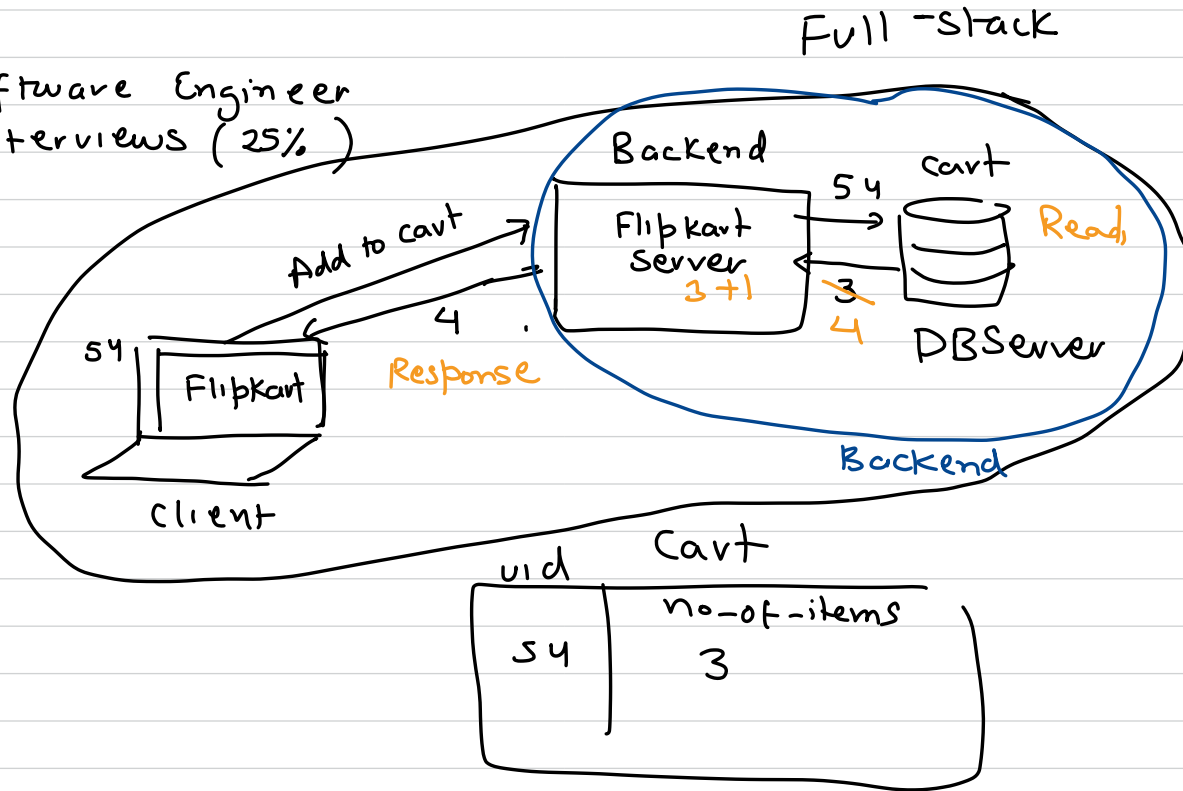 Full-stack
ftware Engineer
terviews (25%)
Backend
cart
54
Flipkart
Server
3+1
Read,
3
4
DBServer
Add to cart
4
Response
54
Flipkart
Client
Backend
Cart
uid
no-of-items
54
3